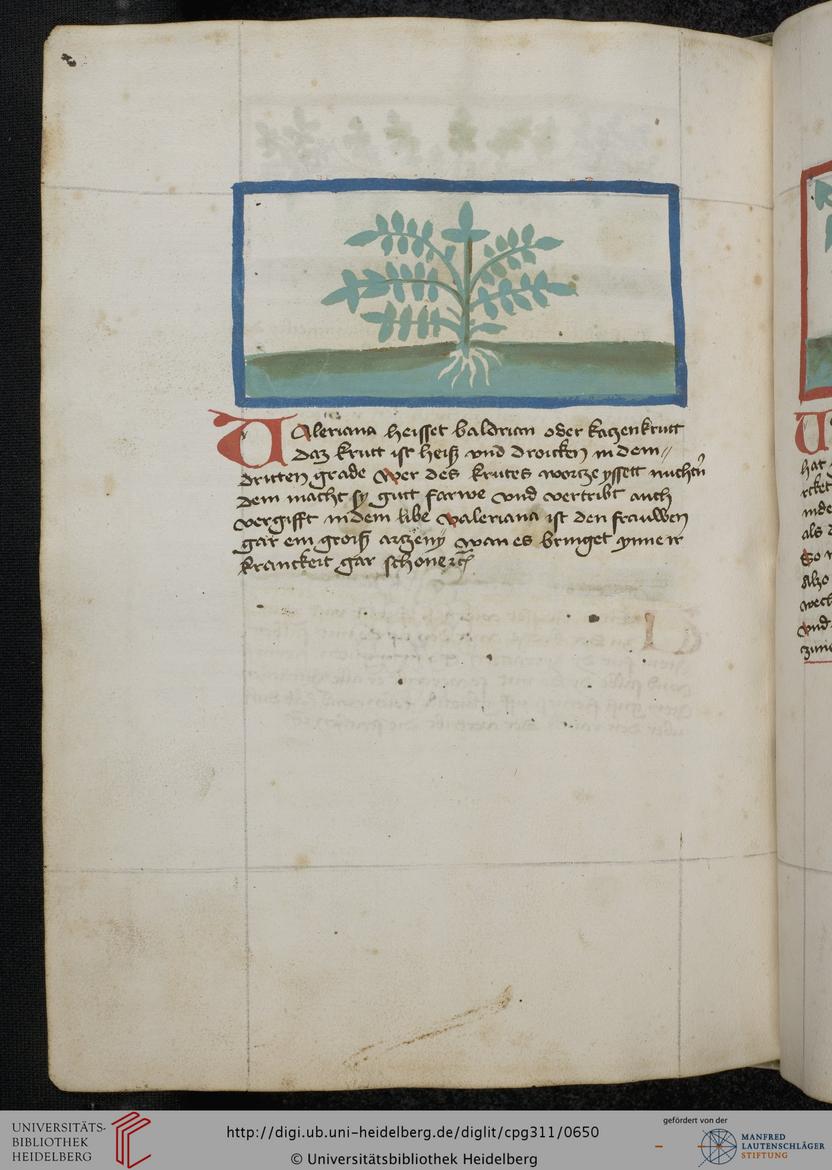 VAleriana heisset baldrian oder katzenkrutt
daz krutt ist heiß vnd droicken in dem
dritten grade wer des krutes wortze yssett nuchtern
dem macht sy gutt farwe vnd vertribt auch
vergifft in dem libe valeriana ist den frauwen
gar ein groiß artzeny wan es bringet ynne ir
kranckeit gar schone
UNIVERSITÄTS-
BIBLIOTHEK
HEIDELBERG
http://digi.ub.uni-heidelberg.de/diglit/cpg311/0650
© Universitätsbibliothek Heidelberg
gefördert von der
MANFRED
LAUTENSCHLÄGER
STIFTUNG